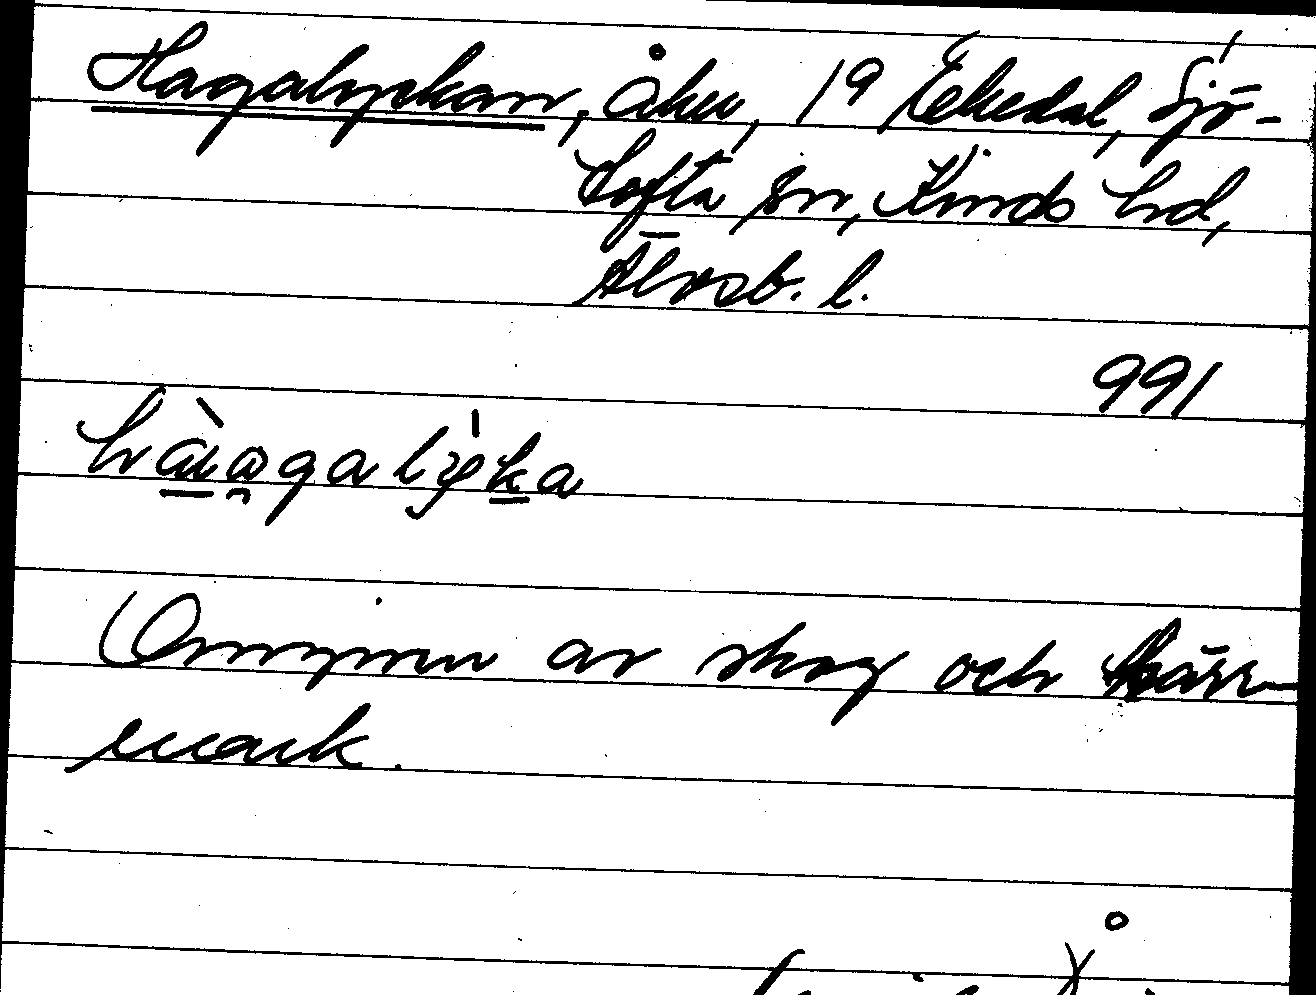 Hagalyckan, åker, 19 Ekedal, Sjö-
tofta sn, Kinds hd,
Älvsb. l.
991
Omgiven av skog och kärr-
mark.